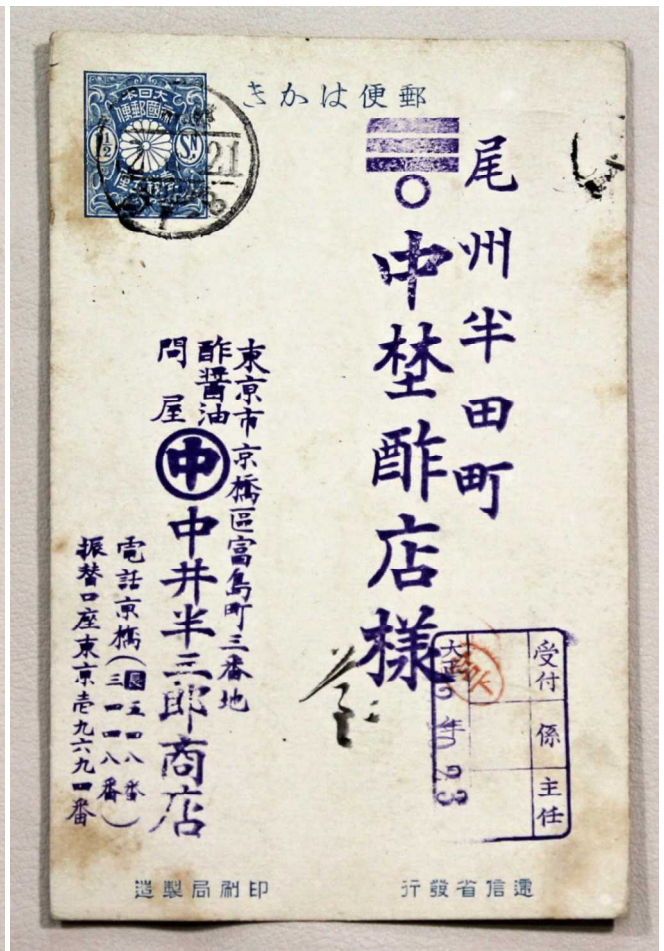 郵便はかき
大日本
帝國郵便
1½
Sn.
21
尾州半田町
中埜酢店様
東京市京橋區富島町三番地
酢醤油
問屋
中
中井半三郎商店
電話京橋(長五四八番
三一四八番)
振替口座東京壱九六九四番
受付
係
主任
大正
23
遞信省發行
印刷局製造